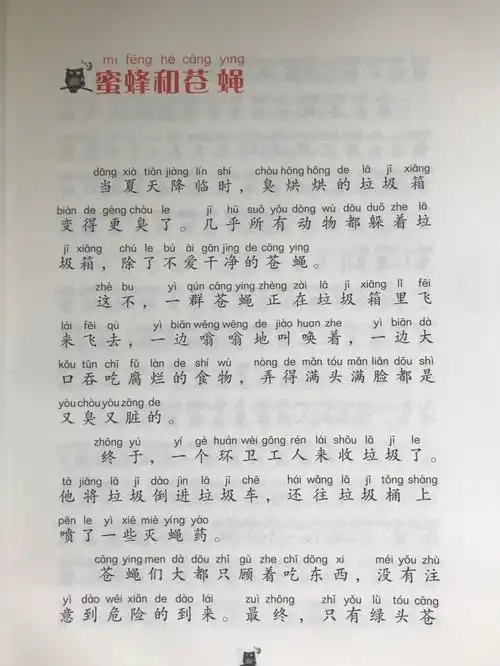 mì fēng hé cāng ying
蜜蜂和苍蝇
dāng xià tiān jiàng lín shí chòu hōng hōng de lā jī xiāng
当夏天降临时，臭烘烘的垃圾箱
biàn de gèng chòu le jī hū suǒ yǒu dòng wù dōu duǒ zhe lā
变得更臭了。几乎所有动物都躲着垃
jī xiāng chú le bú ài gān jìng de cāng ying
圾箱，除了不爱干净的苍蝇。
zhè bu yì qún cāng ying zhèng zài lā jī xiāng lǐ fēi
这不，一群苍蝇正在垃圾箱里飞
lái fēi qù yì biān wēng wēng de jiào huan zhe yì biān dà
来飞去，一边嗡嗡地叫唤着，一边大
kǒu tūn chī fǔ làn de shí wù nòng de mǎn tóu mǎn liǎn dōu shì
口吞吃腐烂的食物，弄得满头满脸都是
yòu chòu yòu zāng de
又臭又脏的。
zhōng yú yí gè huán wèi gōng rén lái shōu lā jī le
终于，一个环卫工人来收垃圾了。
tā jiāng lā jī dào jìn lā jī chē hái wǎng lā jī tǒng shàng
他将垃圾倒进垃圾车，还往垃圾桶上
pēn le yì xiē miè yíng yào
喷了一些灭蝇药。
cāng ying men dà dōu zhǐ gù zhe chī dōng xi méi yǒu zhù
苍蝇们大都只顾着吃东西，没有注
yì dào wēi xiǎn de dào lái zuì zhōng zhǐ yǒu lǜ tóu cāng
意到危险的到来。最终，只有绿头苍